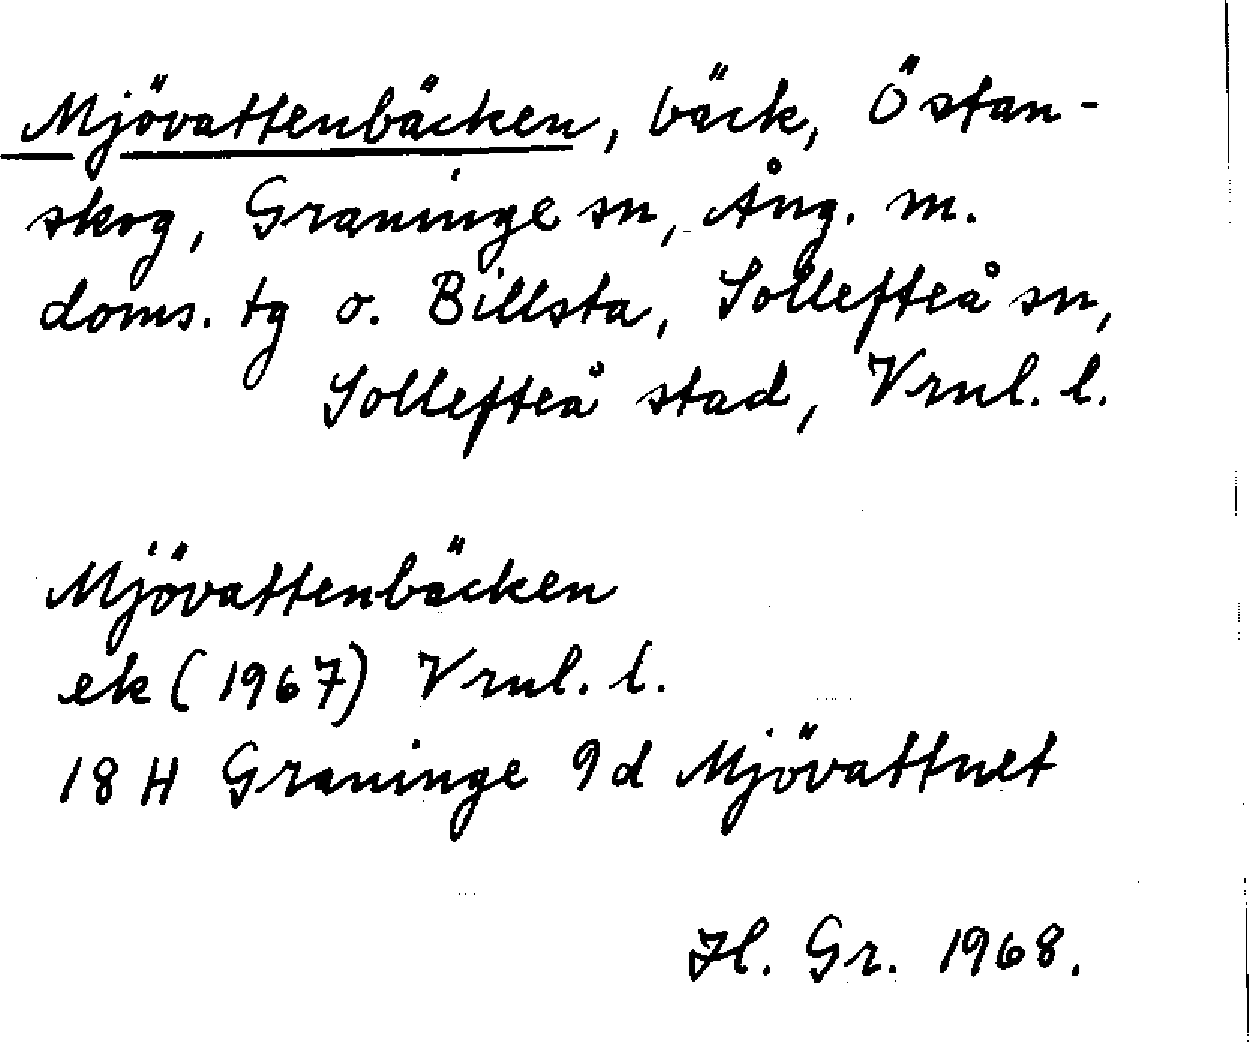 Mjövattenbäcken, bäck, Östan-
skog, Graninge sn, Ång. m.
doms. tg o. Billsta, Sollefteå sn,
Sollefteå stad, Vrnl. l.
Mjövattenbäcken
ek (1967) Vrnl. l.
18 H Graninge 9d Mjövattnet
Hl. Gr. 1968.